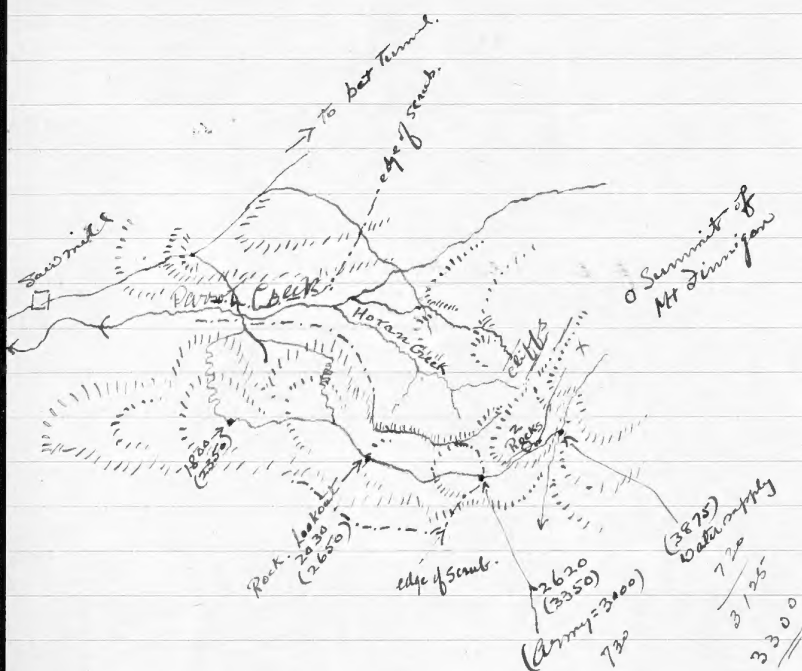 → to bat tunnel.
edge of scrub.
Sawmill
Parson's Creek
Horan Creek
cliffs
o Summit of
Mt Finnigan
X
1800
(2350)
Rock. Lookout
2030
(2650)
2
Rocks
on
edge of scrub.
2620
(3350)
(Army=3000)
730
(3875)
Water supply
720
3125
3300